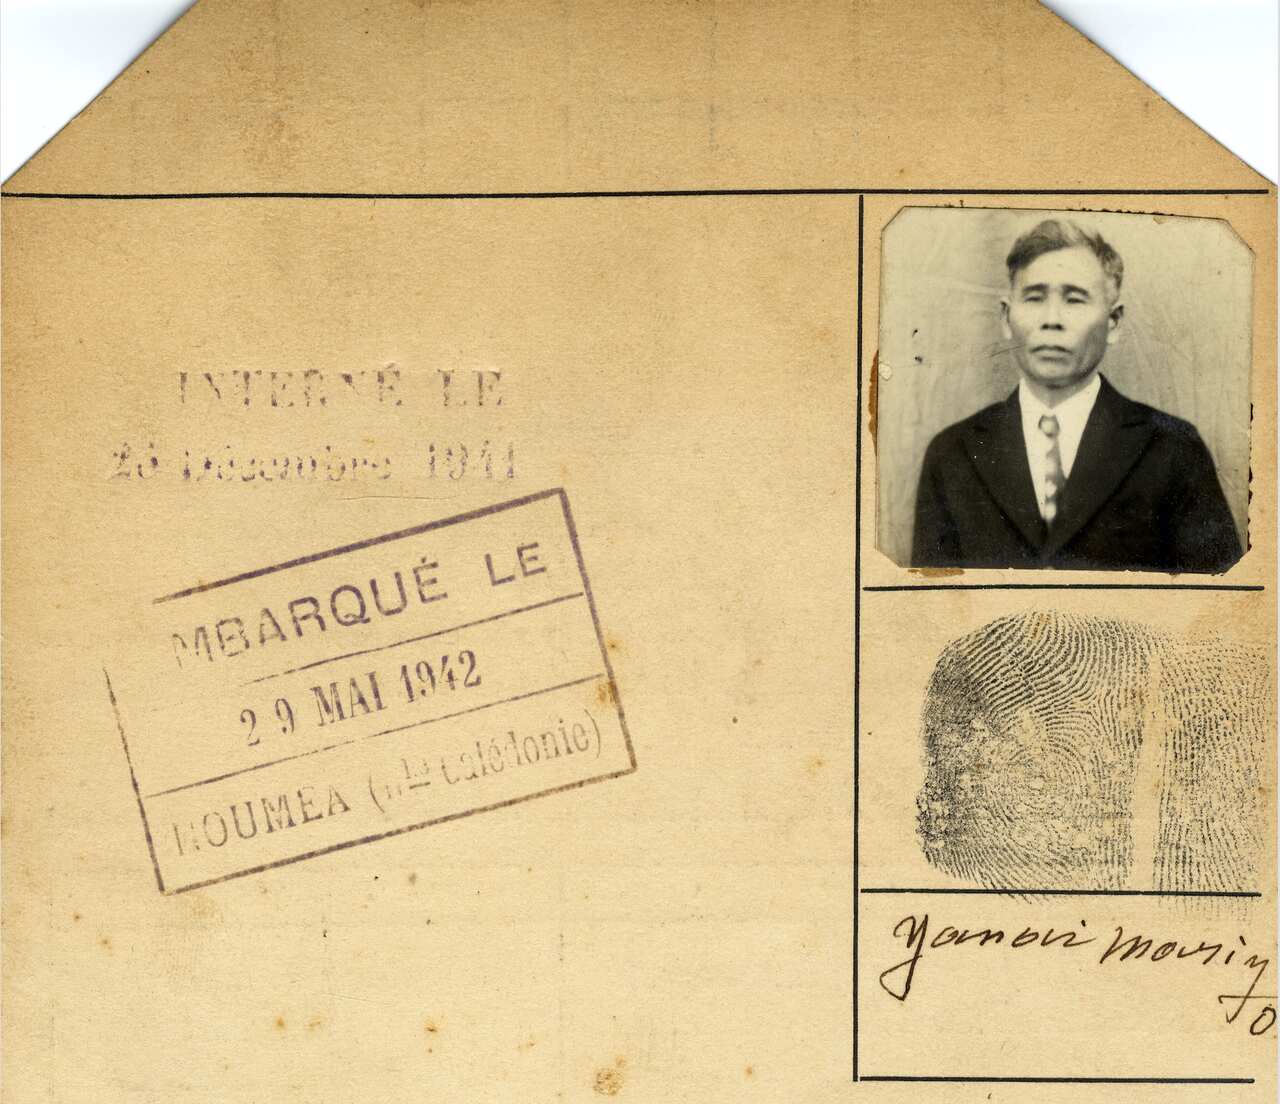 INTERNÉ LE
Décembre 1941
MBARQUÉ LE
29 MAI 1942
NOUMEA (Nlle Calédonie)
yanai